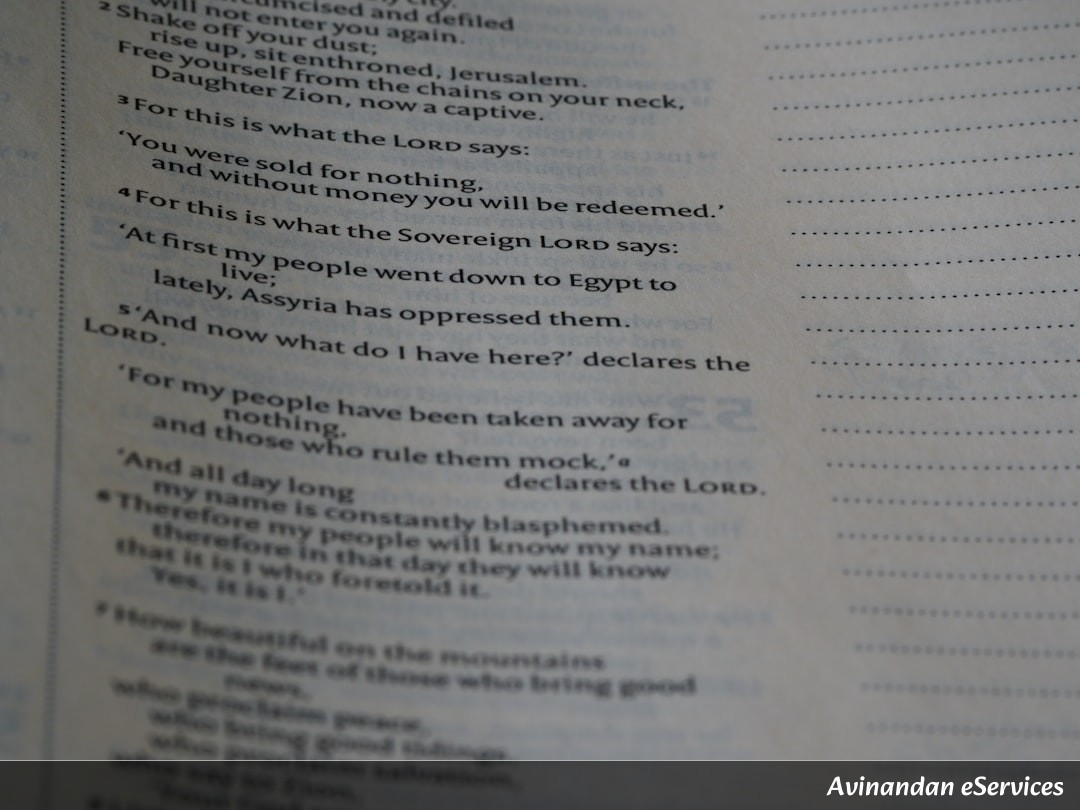 umcised and defiled
will not enter you again.
² Shake off your dust;
rise up, sit enthroned, Jerusalem.
Free yourself from the chains on your neck,
Daughter Zion, now a captive.
³ For this is what the LORD says:
‘You were sold for nothing,
and without money you will be redeemed.’
⁴ For this is what the Sovereign LORD says:
‘At first my people went down to Egypt to
live;
lately, Assyria has oppressed them.
⁵ ‘And now what do I have here?’ declares the
LORD.
‘For my people have been taken away for
nothing,
and those who rule them mock,’ᵃ
declares the LORD.
‘And all day long
my name is constantly blasphemed.
⁶ Therefore my people will know my name;
therefore in that day they will know
that it is I who foretold it.
Yes, it is I.’
⁷ How beautiful on the mountains
are the feet of those who bring good
news,
who proclaim peace,
who bring good tidings,
who proclaim salvation,
who say to Zion,
Avinandan eServices